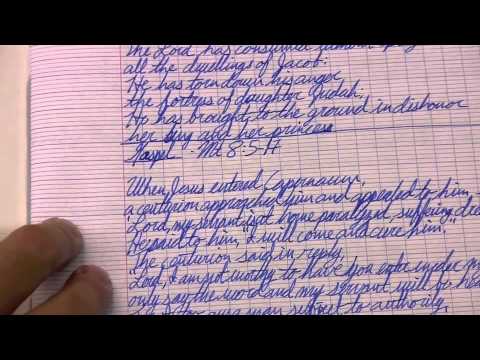 the Lord has consumed without
all the dwellings of Jacob:
He has torn down in his anger
the fortress of daughter Judah;
He has brought to the ground in dishonor
her king and her princes
Gospel - Mt 8:5-17
When Jesus entered Capernaum,
a centurion approached him and appealed to him,
"Lord, my servant is at home paralyzed, suffering
He said to him, "I will come and cure him."
The centurion said in reply,
"Lord, I am not worthy to have you enter under my
only say the word and my servant will be
too am a man subject to authority,